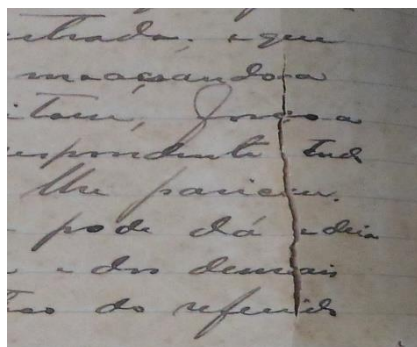 estrada, e que
maçando-a
força a
espondente tud
lhe parecer.
pode dá ideia
e dos demais
do referido